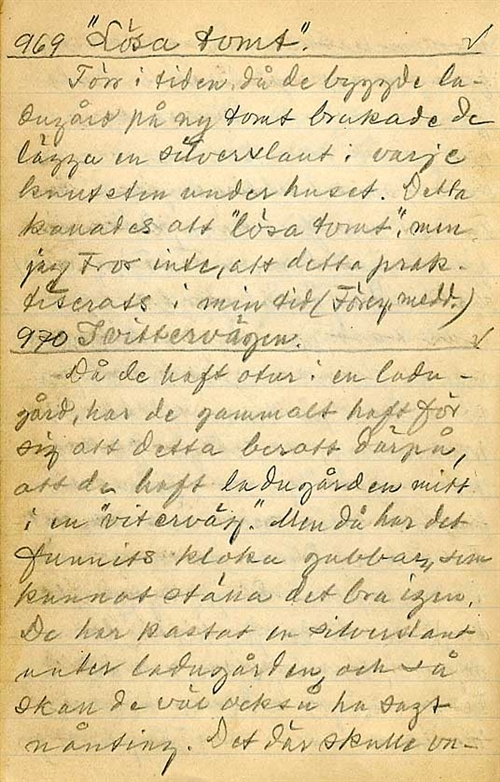 969 "Lösa tomt". √
Förr i tiden, då de byggde la-
dugård på ny tomt brukade de
lägga en silverslant i varje
knutsten under huset. Detta
kallades att "lösa tomt", men
jag tror inte, att detta prak-
tiserats i min tid (Föreg. medd.)
970 I vittervägen. √
Då de haft otur i en ladu-
gård, har de gammalt haft för
sig att detta berott därpå,
att de haft ladugården mitt
i en "vitterväg". Men då har det
funnits kloka gubbar, som
kunnat ställa det bra igen.
De har kastat en silverslant
under ladugården, och så
skall de väl också ha sagt
nånting. Det där skulle va-